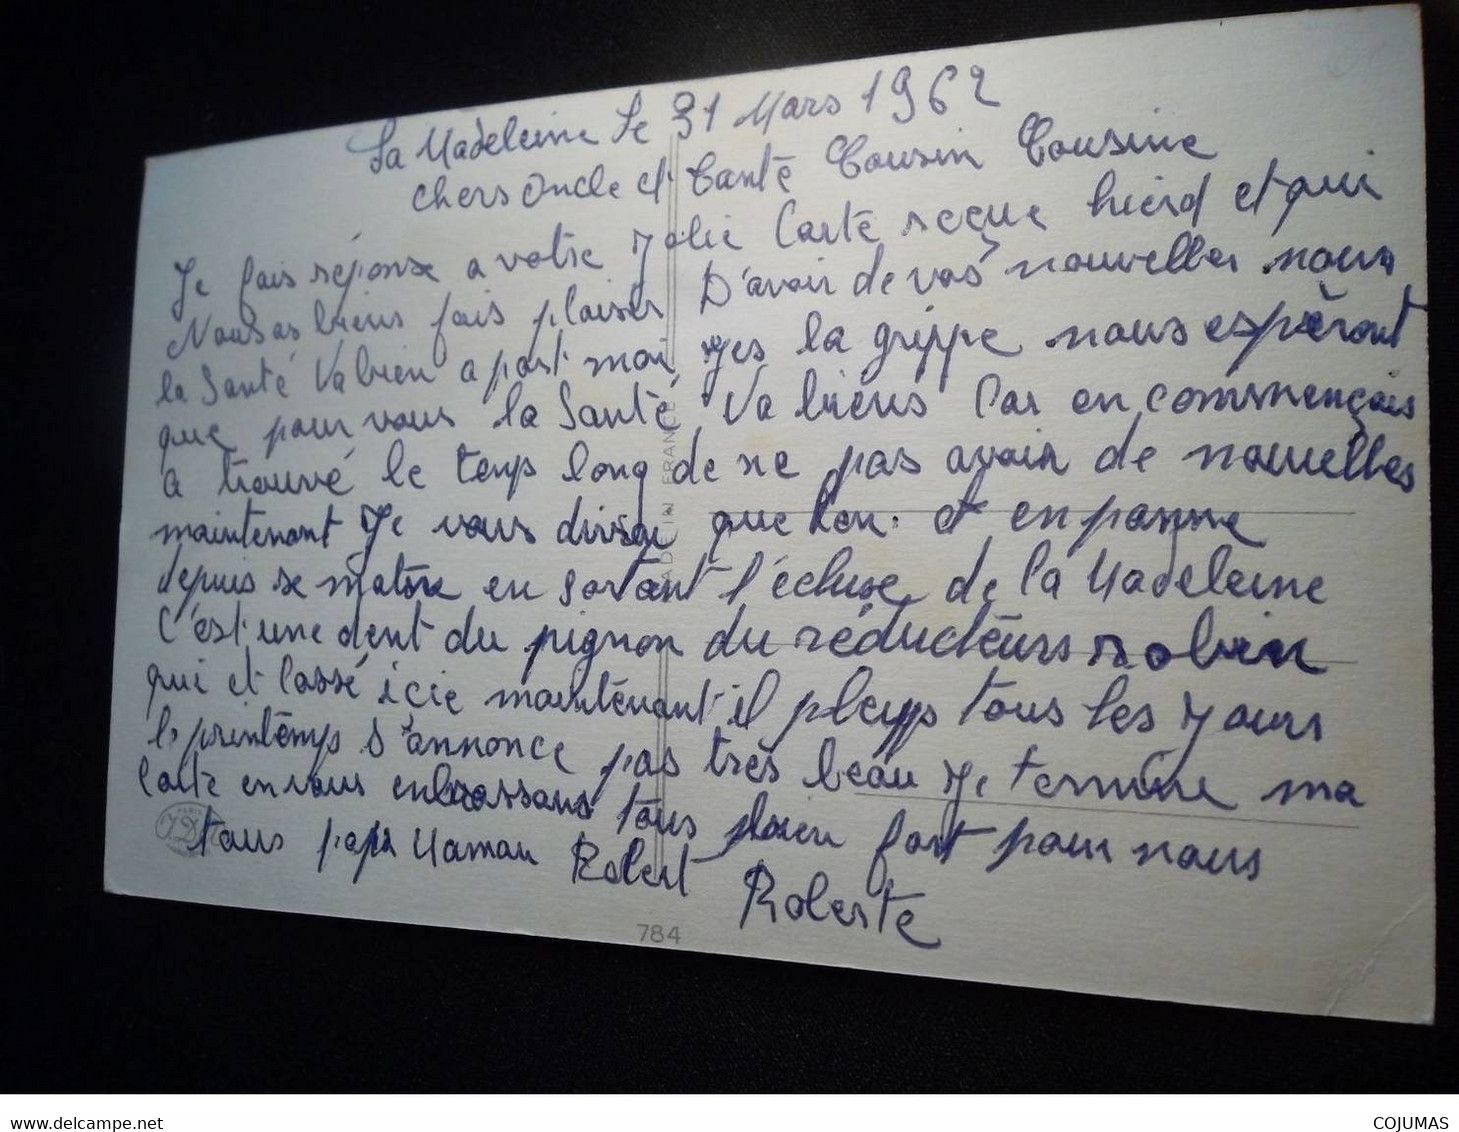 La Madeleine Le 31 Mars 1962
chers oncle et tante Cousin Cousine
Je fais réponse a votre Jolie Carte reçue hierd et qui
Nous as biens fais plaisir D'avoir de vos nouvelles nous
la Santé Va bien a part moi J'es la grippe nous espèront
que pour vous la Santé Va biens Car en commençais
a trouvé le temps long de ne pas avoir de nouvelles
maintenant Je vous dirsai que l'on et en panne
depuis se matin en sortant l'écluse de la Madeleine
C'est une dent du pignon du réducteurs robin
qui et cassé icie maintenant il pleus tous les Jours
le printemps s'annonce pas très beau Je termine ma
Carte en vous enbrassans tous bien fort pour nous
tous papa Maman Robert Roberte
MADE IN FRANCE
PARIS
784
www.delcampe.net
COJUMAS